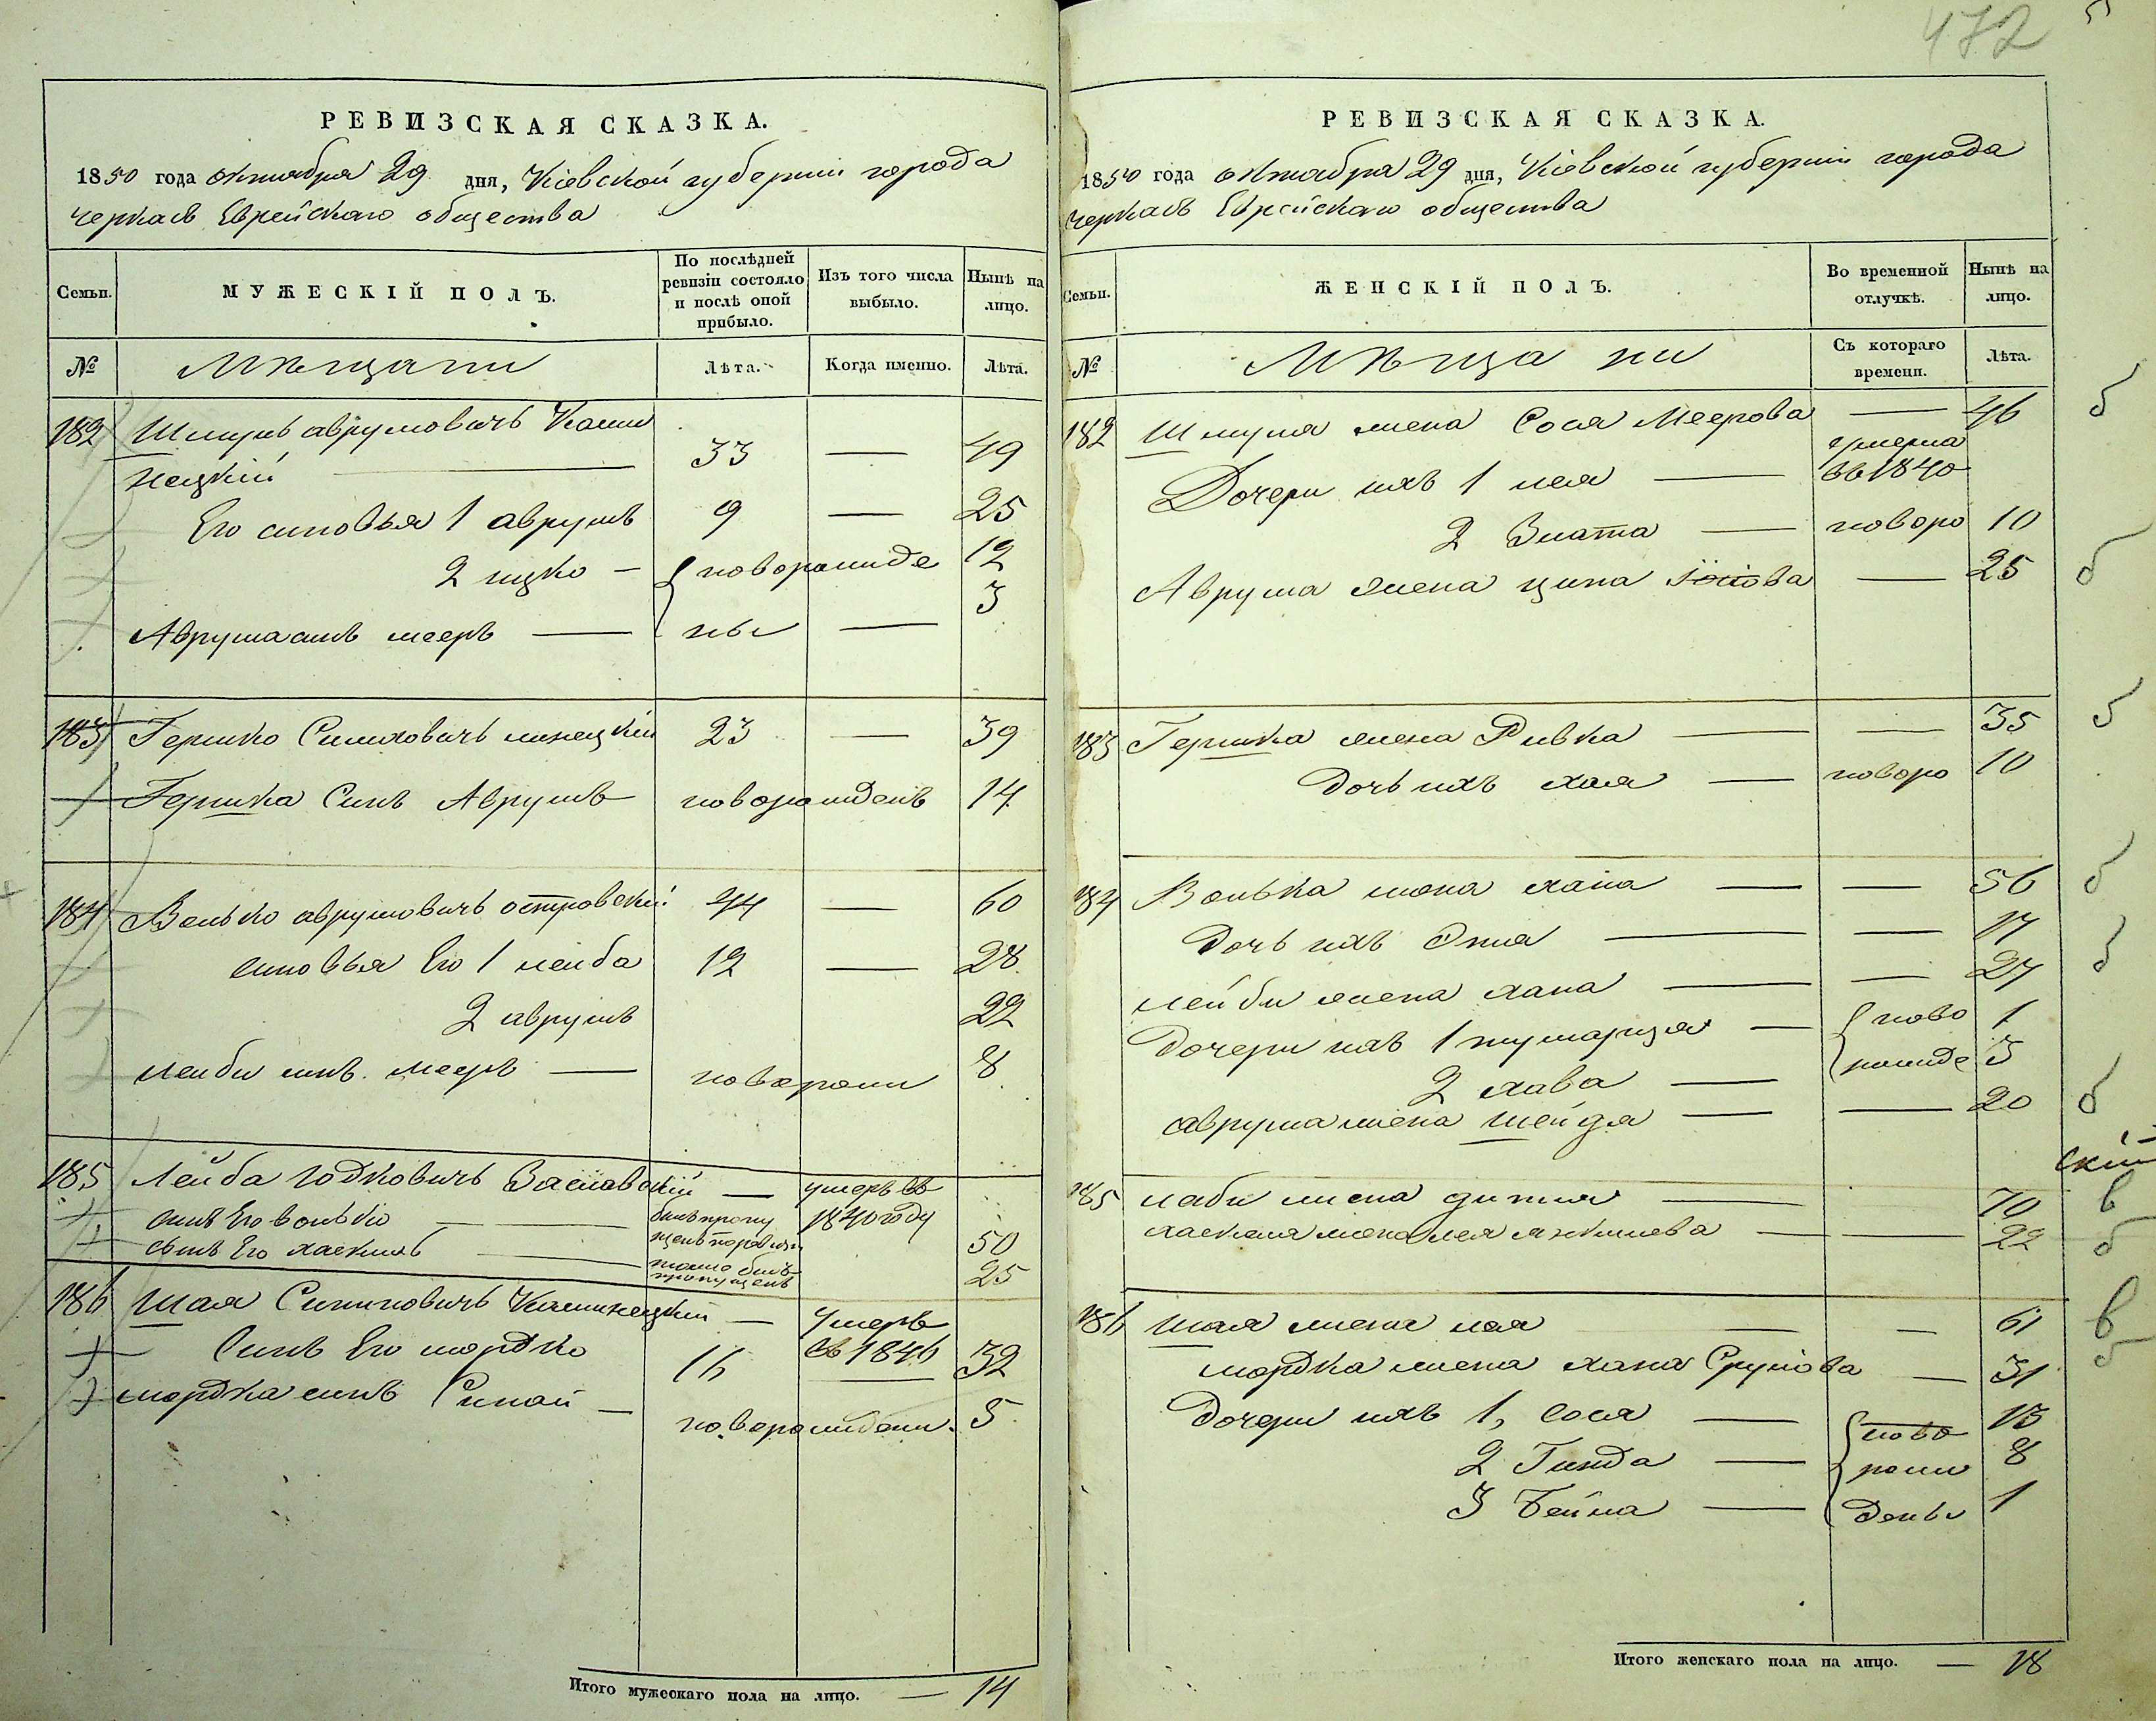 472
РЕВИЗСКАЯ СКАЗКА.
1850 года октября 29 дня, Кіевской губерніи города
Черкасъ Еврейскаго общества
Семьи. МУЖЕСКІЙ ПОЛЪ. По послѣдней ревизіи состояло и послѣ оной прибыло. Изъ того числа выбыло. Нынѣ на лицо.
№ Мѣщани Лѣта. Когда именно. Лѣта.
182 Шмуль аврумовичъ Ками
нецкій — 33 — 49
Его сыновья 1 аврумъ 9 — 25
2 ицко — новорожде 12
Аврума сынъ мееръ — ны — 3
183 Гершко Симховичъ линецкій 23 — 39
Гершка Сынъ Аврумъ новорожденъ 14
184 Волько аврумовичъ островскій 44 — 60
сыновья Его 1 лейба 12 — 28
2 аврумъ 22
лейби сынъ мееръ — новорожд 8
185 Лейба Іодковичъ Заславскій — умеръ въ
сынъ Его волько — былъ пропу 1840 году
щенъ по ревизіи 50
сынъ Его хаскель — тоже былъ
пропущенъ 25
186 Шая Синиовичъ Каминецкій — умеръ
въ 1846
Сынъ Его мордко 16 — 32
мордка сынъ Синай — новорожден. 5
Итого мужескаго пола на лицо. — 14
РЕВИЗСКАЯ СКАЗКА.
1850 года октября 29 дня, Кіевской губерніи города
Черкасъ Еврейскаго общества
Семьи. ЖЕНСКІЙ ПОЛЪ. Во временной отлучкѣ. Нынѣ на лицо.
№ Мѣщани Съ котораго времени. Лѣта.
182 Шмуля жена Сося Меерова — 46
умерла
Дочери ихъ 1 лея — въ 1840
2 Злата — новоро 10
Аврума жена ципа — 25
183 Гершка жена Ривка — — 35
дочь ихъ хая — новоро 10
184 Волька жена хана — — 56
Дочь ихъ Этя — — 17
лейби жена хана — — 27
Дочери ихъ 1 — ново 1
2 хава — рожде 3
аврума жена шейдя — — 20
скій
185 лейби жена — 70
хаскеля жена лея — — 22
186 шая жена лея — — 61
мордка жена хана Срулова — 31
Дочери ихъ 1, сося — ново 13
2 Гинда — рож 8
3 Бейла — дены 1
Итого женскаго пола на лицо. — 18